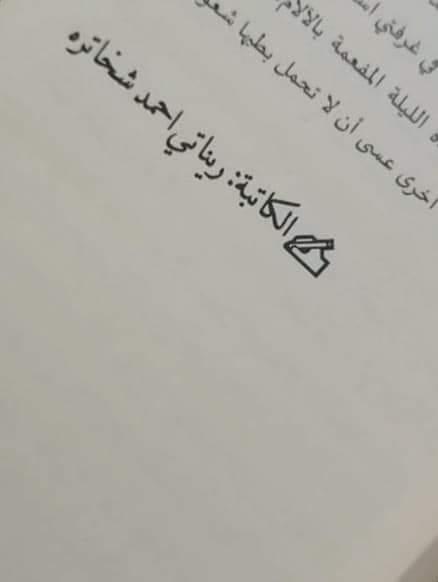 في غرفتي
الليلة المفعمة بالآلام
اخرى عسى أن لا تحمل بطيها
الكاتبة: ريناتي احمد شخاتره